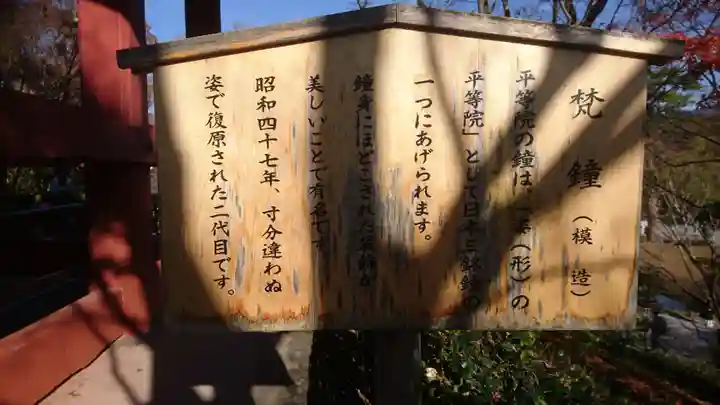 梵鐘（模造）
平等院の鐘は、「姿（形）の
平等院」として日本三銘鐘の
一つにあげられます。
鐘身にほどこされた装飾が
美しいことで有名です。
昭和四十七年、寸分違わぬ
姿で復原された二代目です。